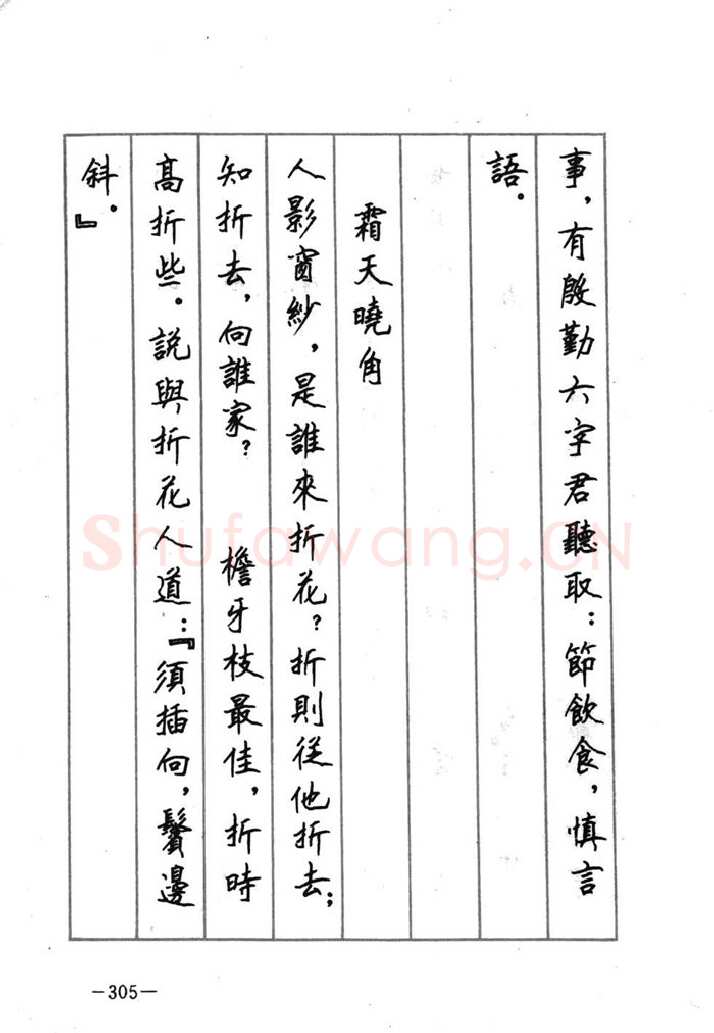 事，有殷勤六字君聽取：節飲食，慎言
語．
霜天曉角
人影窗紗，是誰來折花？折則從他折去；
知折去，向誰家？　檐牙枝最佳，折時
高折些．説與折花人道：『須插向，鬢邊
斜．』
Shufawang.CN
—305—